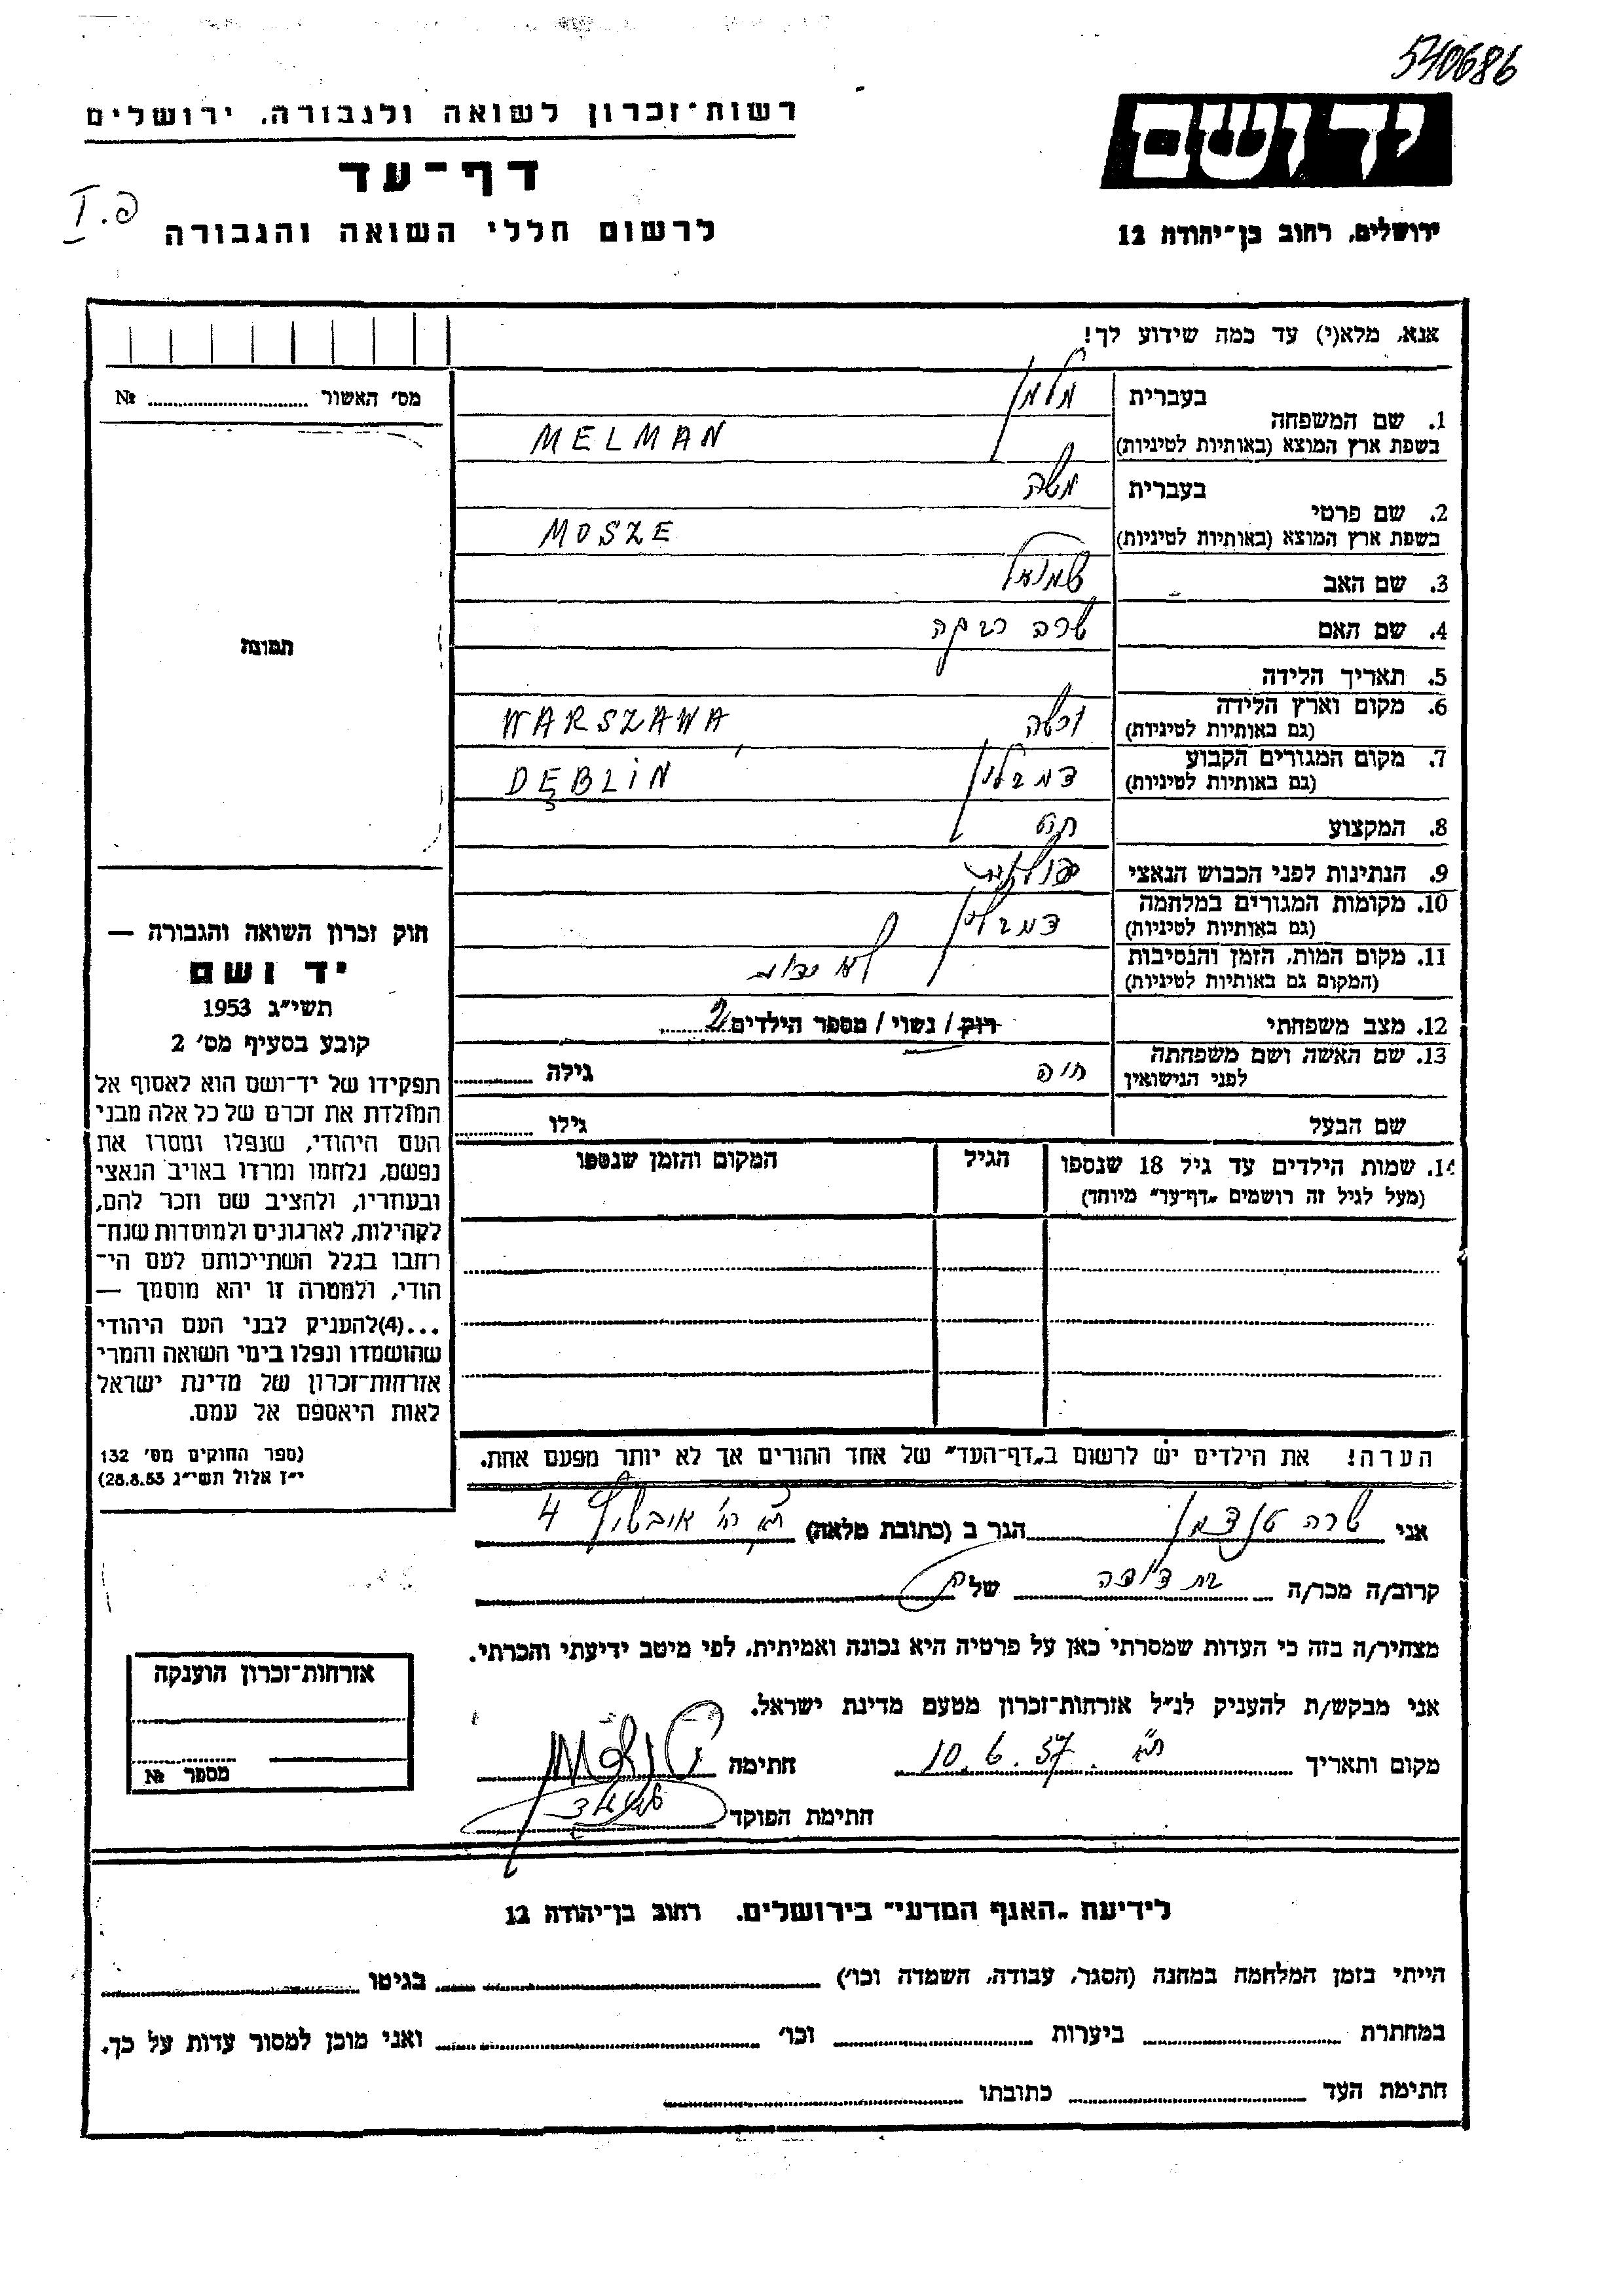 540686
יד ושם
רשות־זכרון לשואה ולגבורה, ירושלים
דף־עד
פ. I
לרשום חללי השואה והגבורה
ירושלים, רחוב בן־יהודה 12
אנא, מלא(י) עד כמה שידוע לך!
מס׳ האשור № 
תמונה
1. שם המשפחה
בעברית מלמן
בשפת ארץ המוצא (באותיות לטיניות) MELMAN
2. שם פרטי
בעברית משה
בשפת ארץ המוצא (באותיות לטיניות) MOSZE
3. שם האב שמואל
4. שם האם שרה רבקה
5. תאריך הלידה
6. מקום וארץ הלידה ורשה WARSZAWA,
(גם באותיות לטיניות)
7. מקום המגורים הקבוע דמבלין DĘBLIN
(גם באותיות לטיניות)
8. המקצוע
9. הנתינות לפני הכבוש הנאצי פולנית
10. מקומות המגורים במלחמה דמבלין
(גם באותיות לטיניות)
11. מקום המות, הזמן והנסיבות לא ידוע
(המקום גם באותיות לטיניות)
12. מצב משפחתי רווק / נשוי / מספר הילדים 2
13. שם האשה ושם משפחתה חיה גילה
לפני הנישואין
שם הבעל גילו
14. שמות הילדים עד גיל 18 שנספו הגיל המקום והזמן שנספו
(מעל לגיל זה רושמים „דף־עד" מיוחד)
הערה: את הילדים יש לרשום ב„דף־העד" של אחד ההורים אך לא יותר מפעם אחת.
חוק זכרון השואה והגבורה —
יד ושם
תשי״ג 1953
קובע בסעיף מס׳ 2
תפקידו של יד־ושם הוא לאסוף אל
המולדת את זכרם של כל אלה מבני
העם היהודי, שנפלו ומסרו את
נפשם, נלחמו ומרדו באויב הנאצי
ובעוזריו, ולהציב שם וזכר להם,
לקהילות, לארגונים ולמוסדות שנח־
רבו בגלל השתייכותם לעם הי־
הודי, ולמטרה זו יהא מוסמך —
...(4)להעניק לבני העם היהודי
שהושמדו ונפלו בימי השואה והמרי
אזרחות־זכרון של מדינת ישראל
לאות היאספם אל עמם.
(ספר החוקים מס׳ 132
י״ז אלול תשי״ג 28.8.53)
אני שרה הגר ב (כתובת מלאה) 4
קרוב/ה מכר/ה בת דודה של
מצהיר/ה בזה כי העדות שמסרתי כאן על פרטיה היא נכונה ואמיתית, לפי מיטב ידיעתי והכרתי.
אני מבקש/ת להעניק לנ״ל אזרחות־זכרון מטעם מדינת ישראל.
מקום ותאריך ת״א 10.6.57 חתימה
חתימת הפוקד
אזרחות־זכרון הוענקה
מספר №
לידיעת „האגף המדעי" בירושלים, רחוב בן־יהודה 12
הייתי בזמן המלחמה במחנה (הסגר, עבודה, השמדה וכו׳) בגיטו
במחתרת ביערות וכו׳ ואני מוכן למסור עדות על כך.
חתימת העד כתובתו